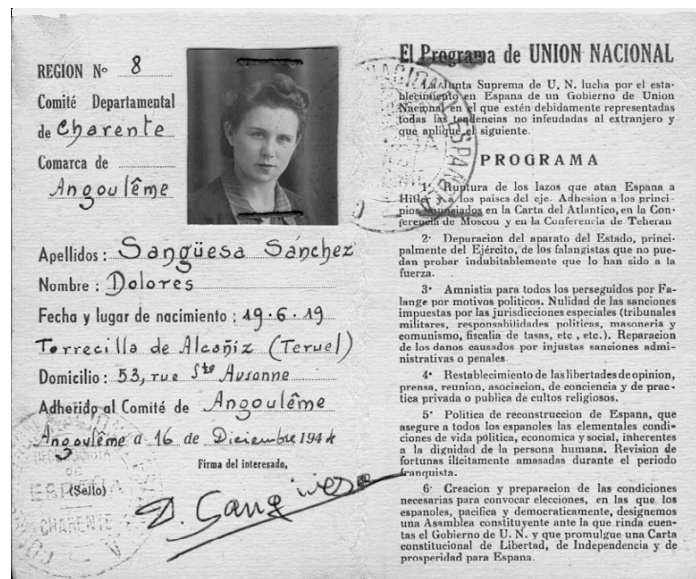 REGION Nº 8
Comité Departamental
de Charente
Comarca de
Angoulême
Apellidos : Sangüesa Sánchez
Nombre : Dolores
Fecha y lugar de nacimiento : 19.6.19
Torrecilla de Alcañiz (Teruel)
Domicilio : 53, rue Ste Ausonne
Adherido al Comité de Angoulême
Angoulême a 16 de Diciembre 1944
Firma del interesado,
(Sello)
D. Sangüesa
ESPAÑA
CHARENTE
El Programa de UNION NACIONAL
La Junta Suprema de U. N. lucha por el esta-
blecimiento en Espana de un Gobierno de Union
Nacional en el que estén debidamente representadas
todas las tendencias no infeudadas al extranjero y
que aplique el siguiente.
PROGRAMA
1· Ruptura de los lazos que atan Espana a
Hitler y a los paises del eje. Adhesion a los princi-
pios enunciados en la Carta del Atlantico, en la Con-
ferencia de Moscou y en la Conferencia de Teheran
2· Depuracion del aparato del Estado, princi-
palmente del Ejército, de los falangistas que no pue-
dan probar indubitablemente que lo han sido a la
fuerza.
3· Amnistia para todos los perseguidos por Fa-
lange por motivos politicos. Nulidad de las sanciones
impuestas por las jurisdicciones especiales (tribunales
militares, responsabilidades politicas, masoneria y
comunismo, fiscalia de tasas, etc , etc.). Reparacion
de los danos causados por injustas sanciones admi-
nistrativas o penales
4· Restablecimiento de las libertades de opinion,
prensa, reunion, asociacion, de conciencia y de prac-
tica privada o publica de cultos religiosos.
5· Politica de reconstruccion de Espana, que
asegure a todos los espanoles las elementales condi-
ciones de vida politica, economica y social, inherentes
a la dignidad de la persona humana. Revision de
fortunas ilicitamente amasadas durante el periodo
franquista.
6· Creacion y preparacion de las condiciones
necesarias para convocar elecciones, en las que los
espanoles, pacifica y democraticamente, designemos
una Asamblea constituyente ante la que rinda cuen-
tas el Gobierno de U. N. y que promulgue una Carta
constitucional de Libertad, de Independencia y de
prosperidad para Espana.